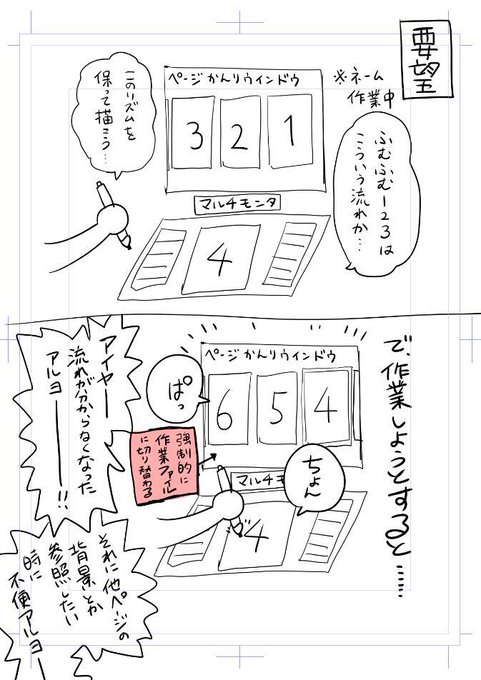 要望
※ネーム
作業中
ページかんりウインドウ
3 2 1
ふむふむー123は
こういう流れか…
このリズムを
保って描こう…
マルチモニタ
4
で、作業しようとすると……
ページかんりウインドウ
6 5 4
ぱっ
強制的に
作業ファイル
に切り替わる
マルチモ
ちょん
4
アイヤー
流れが分からなくなった
アルヨーーー!!
それに他ページの
背景とか
参照したい
時に
不便アルヨー